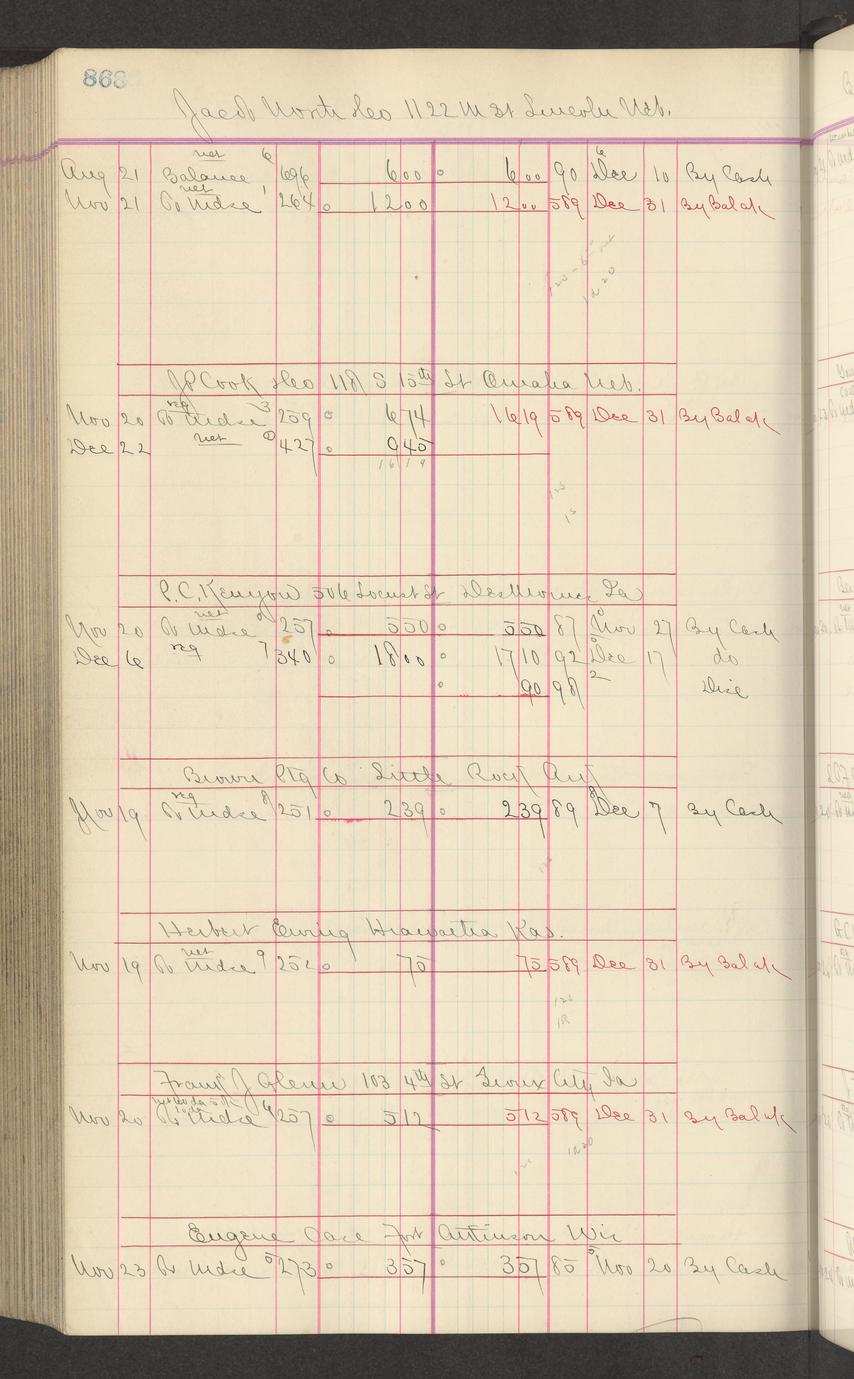 868
Jacob North & Co 1122 M St Lincoln Neb.
net 6 6
Aug 21 Balance 696 600 600 90 Dec 10 By Cash
net 1
Nov 21 To Mdse 264 1200 1200 589 Dec 31 By Bal a/c
JP Cook & Co 118 S 15th St Omaha Neb.
reg 3
Nov 20 To Mdse 259 674 1619 589 Dec 31 By Bal a/c
Dec 22 net 427 945
1619
P.C. Kenyon 506 Locust St Des Moines Ia
net
Nov 20 To Mdse 257 550 550 87 Nov 27 By Cash
Dec 6 reg 7 340 1800 1710 92 Dec 17 do
90 98 2 Disc
Brown Ptg Co Little Rock Ark
reg 8
Nov 19 To Mdse 251 239 239 89 Dec 7 By Cash
Herbert Ewing Hiawatha Kas.
net 9
Nov 19 To Mdse 252 75 75 589 Dec 31 By Bal a/c
Frank J Glenn 103 4th St Sioux City Ia
Nov 20 To Mdse 257 512 512 589 Dec 31 By Bal a/c
Eugene Case Fort Attkinson Wis
Nov 23 To Mdse 273 357 357 85 Nov 20 By Cash